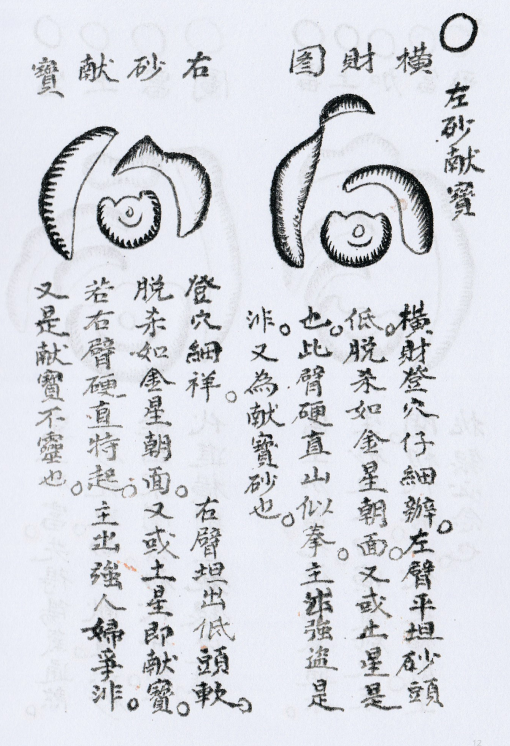 〇左砂献寶
橫財图
橫財登穴仔細辦。左臂平坦砂頭
低。脱杀如金星朝面。又或土星是
也。此臂硬直山似拳。主出強盜是
非。又為献寶砂也。
右砂献寶
登穴細祥。右臂坦出低頭軟。
脱杀如金星朝面。又或土星即献寶。
若右臂硬直特起。主出強人婦爭非。
又是献寶不靈也。